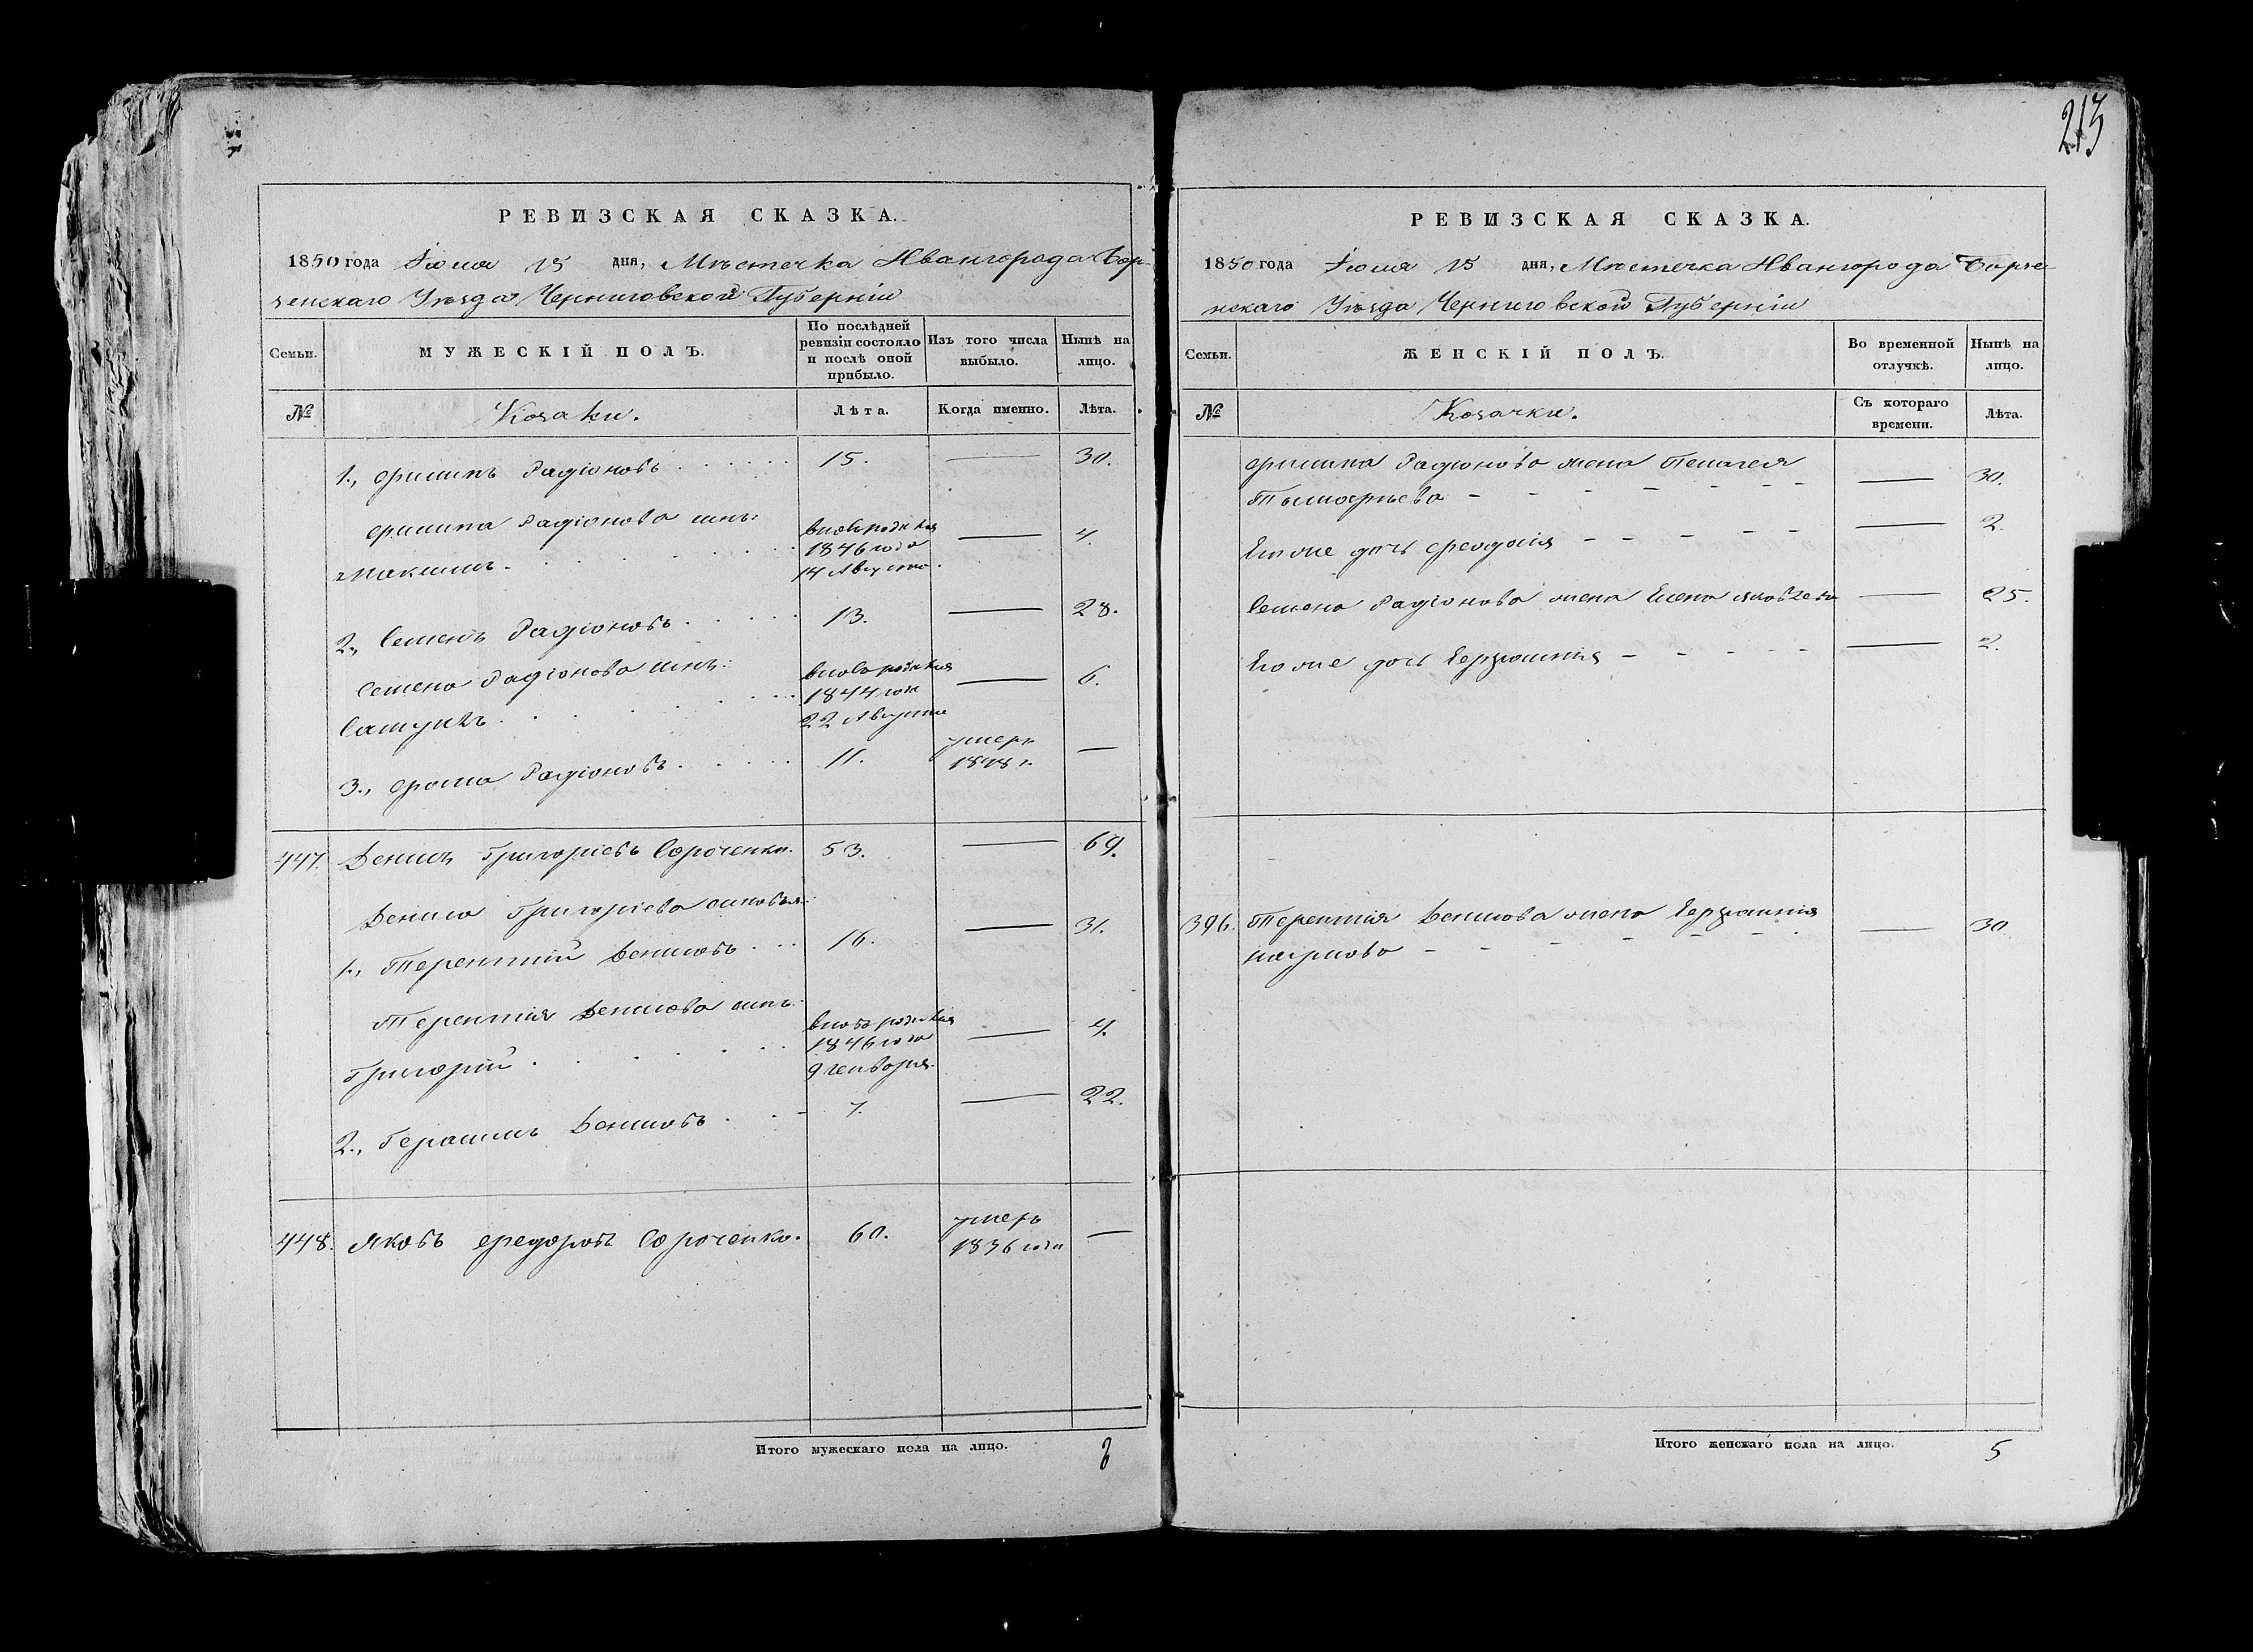 213
РЕВИЗСКАЯ СКАЗКА.
1850 года Іюля 15 дня, Мѣстечка Ивангорода Бор-
зенскаго Уѣзда Черниговской Губерніи
Семьи.
МУЖЕСКІЙ ПОЛЪ.
По послѣдней ревизіи состояло и послѣ оной прибыло.
Изъ того числа выбыло.
Нынѣ на лицо.
№
Козаки.
Лѣта.
Когда именно.
Лѣта.
1., Филипъ Радіоновъ 15. — 30.
Филипа Радіонова сынъ: вновьрожден
Максимъ. 1846 года — 4.
14 Августа.
2., Семенъ Радіоновъ 13. — 28.
Семена Радіонова сынъ: вновьрожден
Самуилъ 1844 года — 6.
22 Августа
3., Фома Радіоновъ 11. умеръ 1848 г. —
447. Денисъ Григоріевъ Сороченко. 53. — 69.
Дениса Григоріева сыновья:
1., Терентій Денисовъ 16. — 31.
Терентія Денисова сынъ: вновьрожден
Григорій 1846 года — 4.
9 генваря.
2., Герасимъ Денисовъ 7. — 22.
448. Яковъ Федоровъ Сороченко. 60. умеръ 1836 года —
Итого мужескаго пола на лицо.
РЕВИЗСКАЯ СКАЗКА.
1850 года Іюля 15 дня, Мѣстечка Ивангорода Борзе-
нскаго Уѣзда Черниговской Губерніи
Семьи.
ЖЕНСКІЙ ПОЛЪ.
Во временной отлучкѣ.
Нынѣ на лицо.
№
Козачки.
Съ котораго времени.
Лѣта.
Филипа Радіонова жена Пелагея
— 30.
Его же дочь Феодосія — 2.
Семена Радіонова жена Елена Яковлева — 25.
Его же дочь Евфимія — 2.
396. Терентія Денисова жена Евфимія
Наумова — 30
Итого женскаго пола на лицо. 5